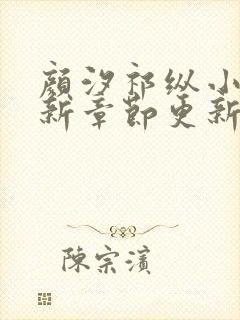 顾汐祁纵小
新章節更新
陳宗濱